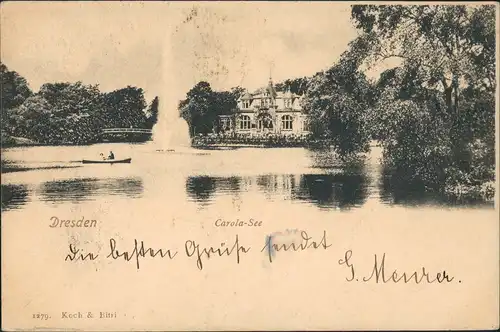 Dresden Carola-See
Die besten Grüße sendet
G. Meurer.
1279. Koch & Bitri